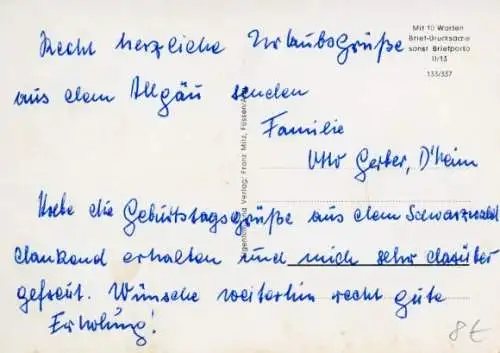 Recht herzliche Urlaubsgrüße
aus dem Allgäu senden
Familie
Otto Gerber, D'heim
Habe die Geburtstagsgrüße aus dem Schwarzwald
dankend erhalten und mich sehr darüber
gefreut. Wünsche weiterhin recht gute
Erholung!
Mit 10 Worten
Brief-Drucksache
sonst Briefporto
II/13
133/337
Verlag: Franz Milz, Füssen
8€